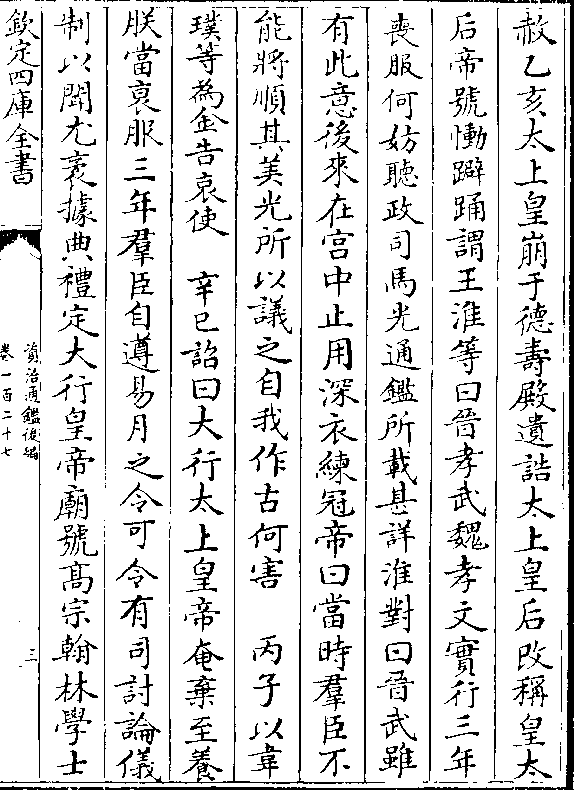 赦乙亥太上皇崩于德壽殿遺誥太上皇后改稱皇太
后帝號慟擗踊謂王淮等曰晉孝武魏孝文實行三年
喪服何妨聽政司馬光通鑑所載甚詳淮對曰晉武雖
有此意後來在宮中止用深衣練冠帝曰當時羣臣不
能將順其美光所以議之自我作古何害　丙子以韋
璞等為金告哀使　辛巳詔曰大行太上皇帝奄棄至養
朕當衰服三年羣臣自遵易月之令可令有司討論儀
制以聞尤袤據典禮定大行皇帝廟號髙宗翰林學士
欽定四庫全書
資治通鑑後編
卷一百二十七
三